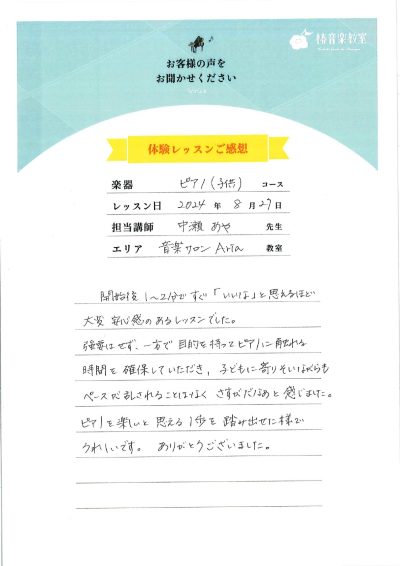 椿音楽教室
お客様の声を
お聞かせください
体験レッスンご感想
楽器 ピアノ(子供) コース
レッスン日 2024 年 8 月 27 日
担当講師 中瀬 あや 先生
エリア 音楽サロン Aria 教室
開始後 1〜2分で すぐ「いいな」と思えるほど
大変 安心感のあるレッスンでした。
強要はせず、一方で 目的を持ってピアノに触れる
時間を 確保していただき、子どもに寄りそいながらも
ペースが乱されることはなく さすがだなあと感じました。
ピアノを楽しいと 思える 1歩を 踏み出せた様で
うれしいです。 ありがとうございました。